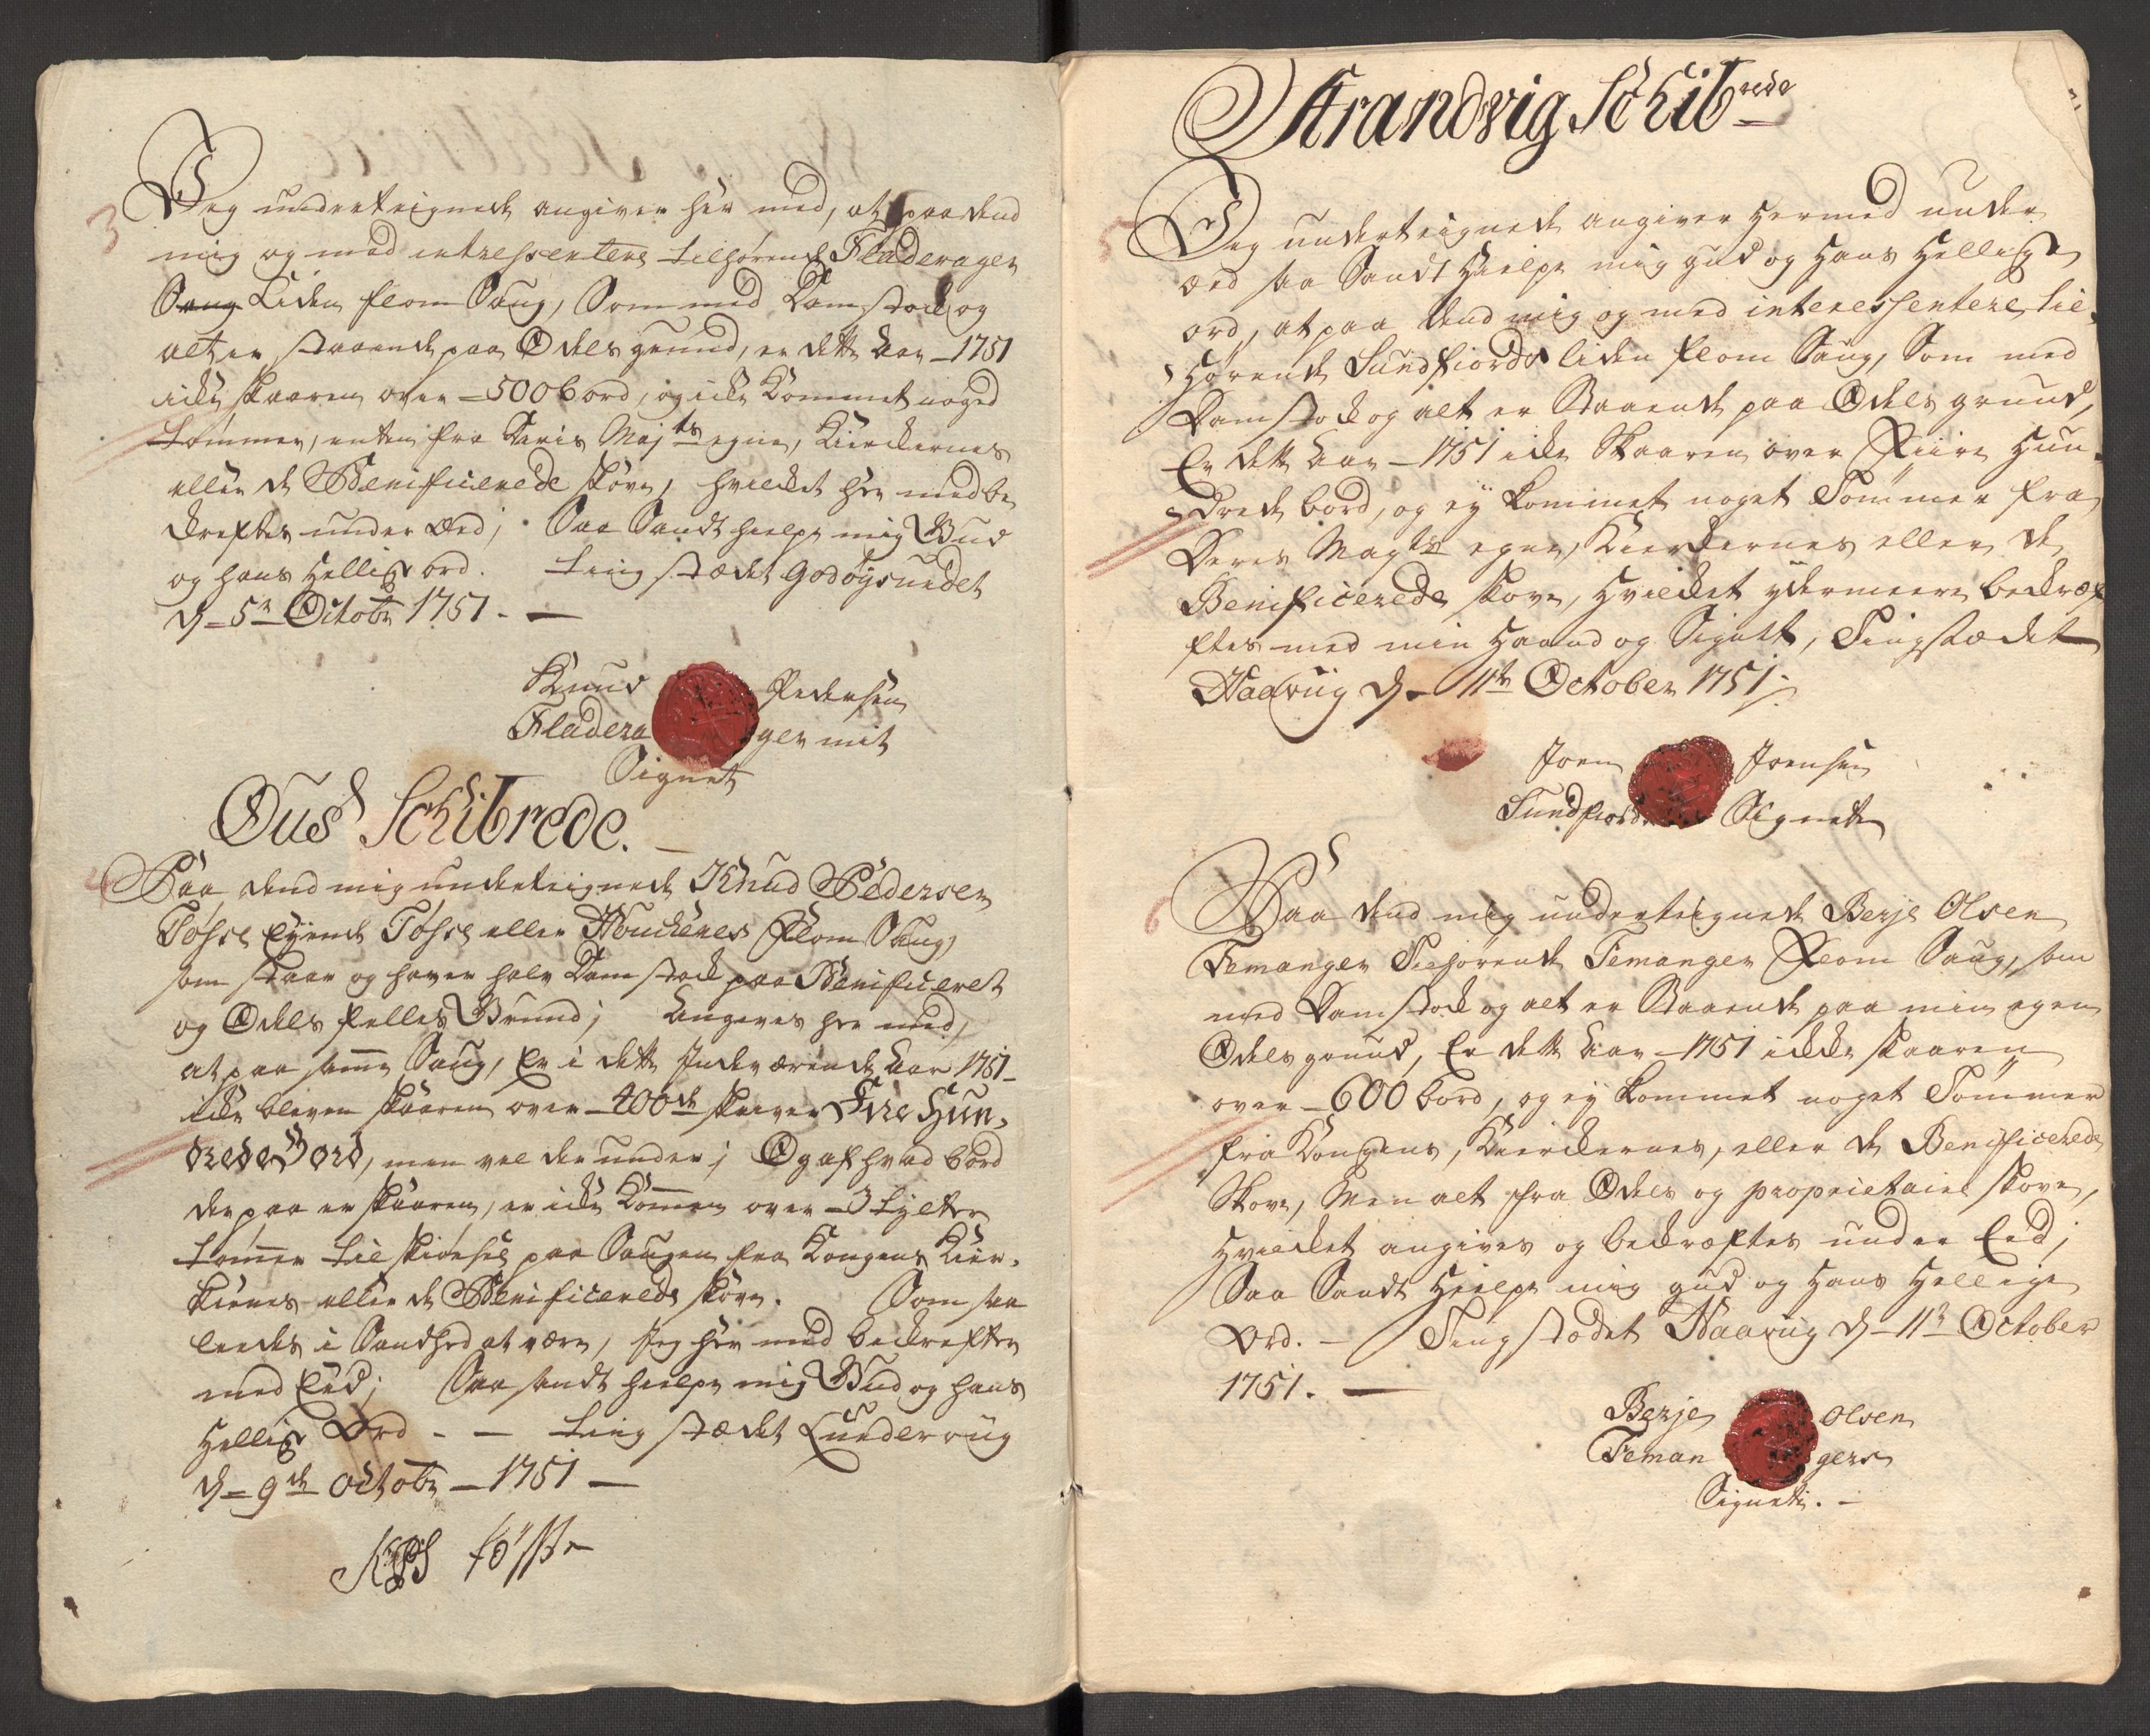 3
Jeg underteignede angiver her med, at paa dend
mig og med intressentere tilhørende Fladerager
Saug Liden flom Saug, Som med Damstock og
alt er staaende paa Odels grund, er dette Aar 1751
icke skaaren over 500 bord, og icke kommet noged
tømmer, enten fra Deris Majts egne, Kierckernes
eller de Benificerede skove, hvilcket her med be
kreftes under Eed; Saa Sandt hielpe mig Gud
og hans hellige ord. Tingstædet Godøysundet
d. 5te Octobr 1751. —
Knud Pedersen
Fladerager mit
Signet
Ous Schibrede.
4
Paa dend mig underteignede Knud Pedersen
Tøsse Eyende Tøsse eller Houckenes Flom Saug,
som staar og haver halv Damstock paa Benificeret
og Odels felles Grund; Angives her med,
at paa samme Saug, Er i dette Indeværende Aar 1751
icke bleven skaaren over 400de skriver Fire Hun-
drede Bord, men vel der under; Og af hvad bord
der paa er skaaren, er icke kommen over 3 tylter
tømmer til skiørsel paa Saugen fra Kongens, Kier-
kernes eller de Benificerede skove. Som saa
leedes i Sandhed at være, Jeg her med bekrefter
med Eed; Saa sandt hielpe mig Gud og hans
hellige Ord - — Tingstædet Lundervig
d. 9de Octobr 1751 —
KPS Tøsse
Strandvig Schibrede
5
Jeg underteignede angiver hermed under
Eed saa Sandt hielpe mig gud og Hans Hellige
ord, at paa dend mig og med interessentere til-
hørende Sundfiords liden flom Saug, Som med
Damstock og alt er Staaende paa Odels grund,
Er dette Aar 1751 icke Skaaren over Fiire Hun-
drede bord, og ey kommet noget Tømmer fra
Deres Magts egne, Kierckernes eller de
Benificerede skove, Hvilcket ydermeere bekræf
ftes med min Haand og Signet, Tingstædet
Haavig d. 11te October 1751.
Joen Joensen
Sundfiord Signete
6
Paa dend mig underteignede Berje Olsen
Femanger Tilhørende Femanger Flom Saug, som
med Damstock og alt er Staaende paa min egen
Odels grund, Er dette Aar 1751 ickke skaaren
over 600 bord, og ey kommet noget Tømmer
fra Kongens, Kierckernes, eller de Benificerede
Skove, Men alt fra Odels og proprietaire skove,
Hvilcket angives og bekræftes under Eed;
Saa Sandt Hielpe mig gud og Hans Hellige
Ord. — Tingstædet Haavig d. 11te October
1751. —
Berje Olsen
Femangers
Signete. —